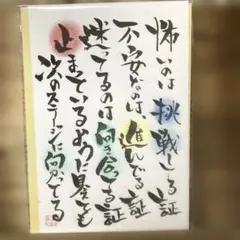 怖いのは挑戦してる証
不安なのは、進んでる証
迷ってるのは向き合ってる証
止まっているように見えても
次のステージに向かってる